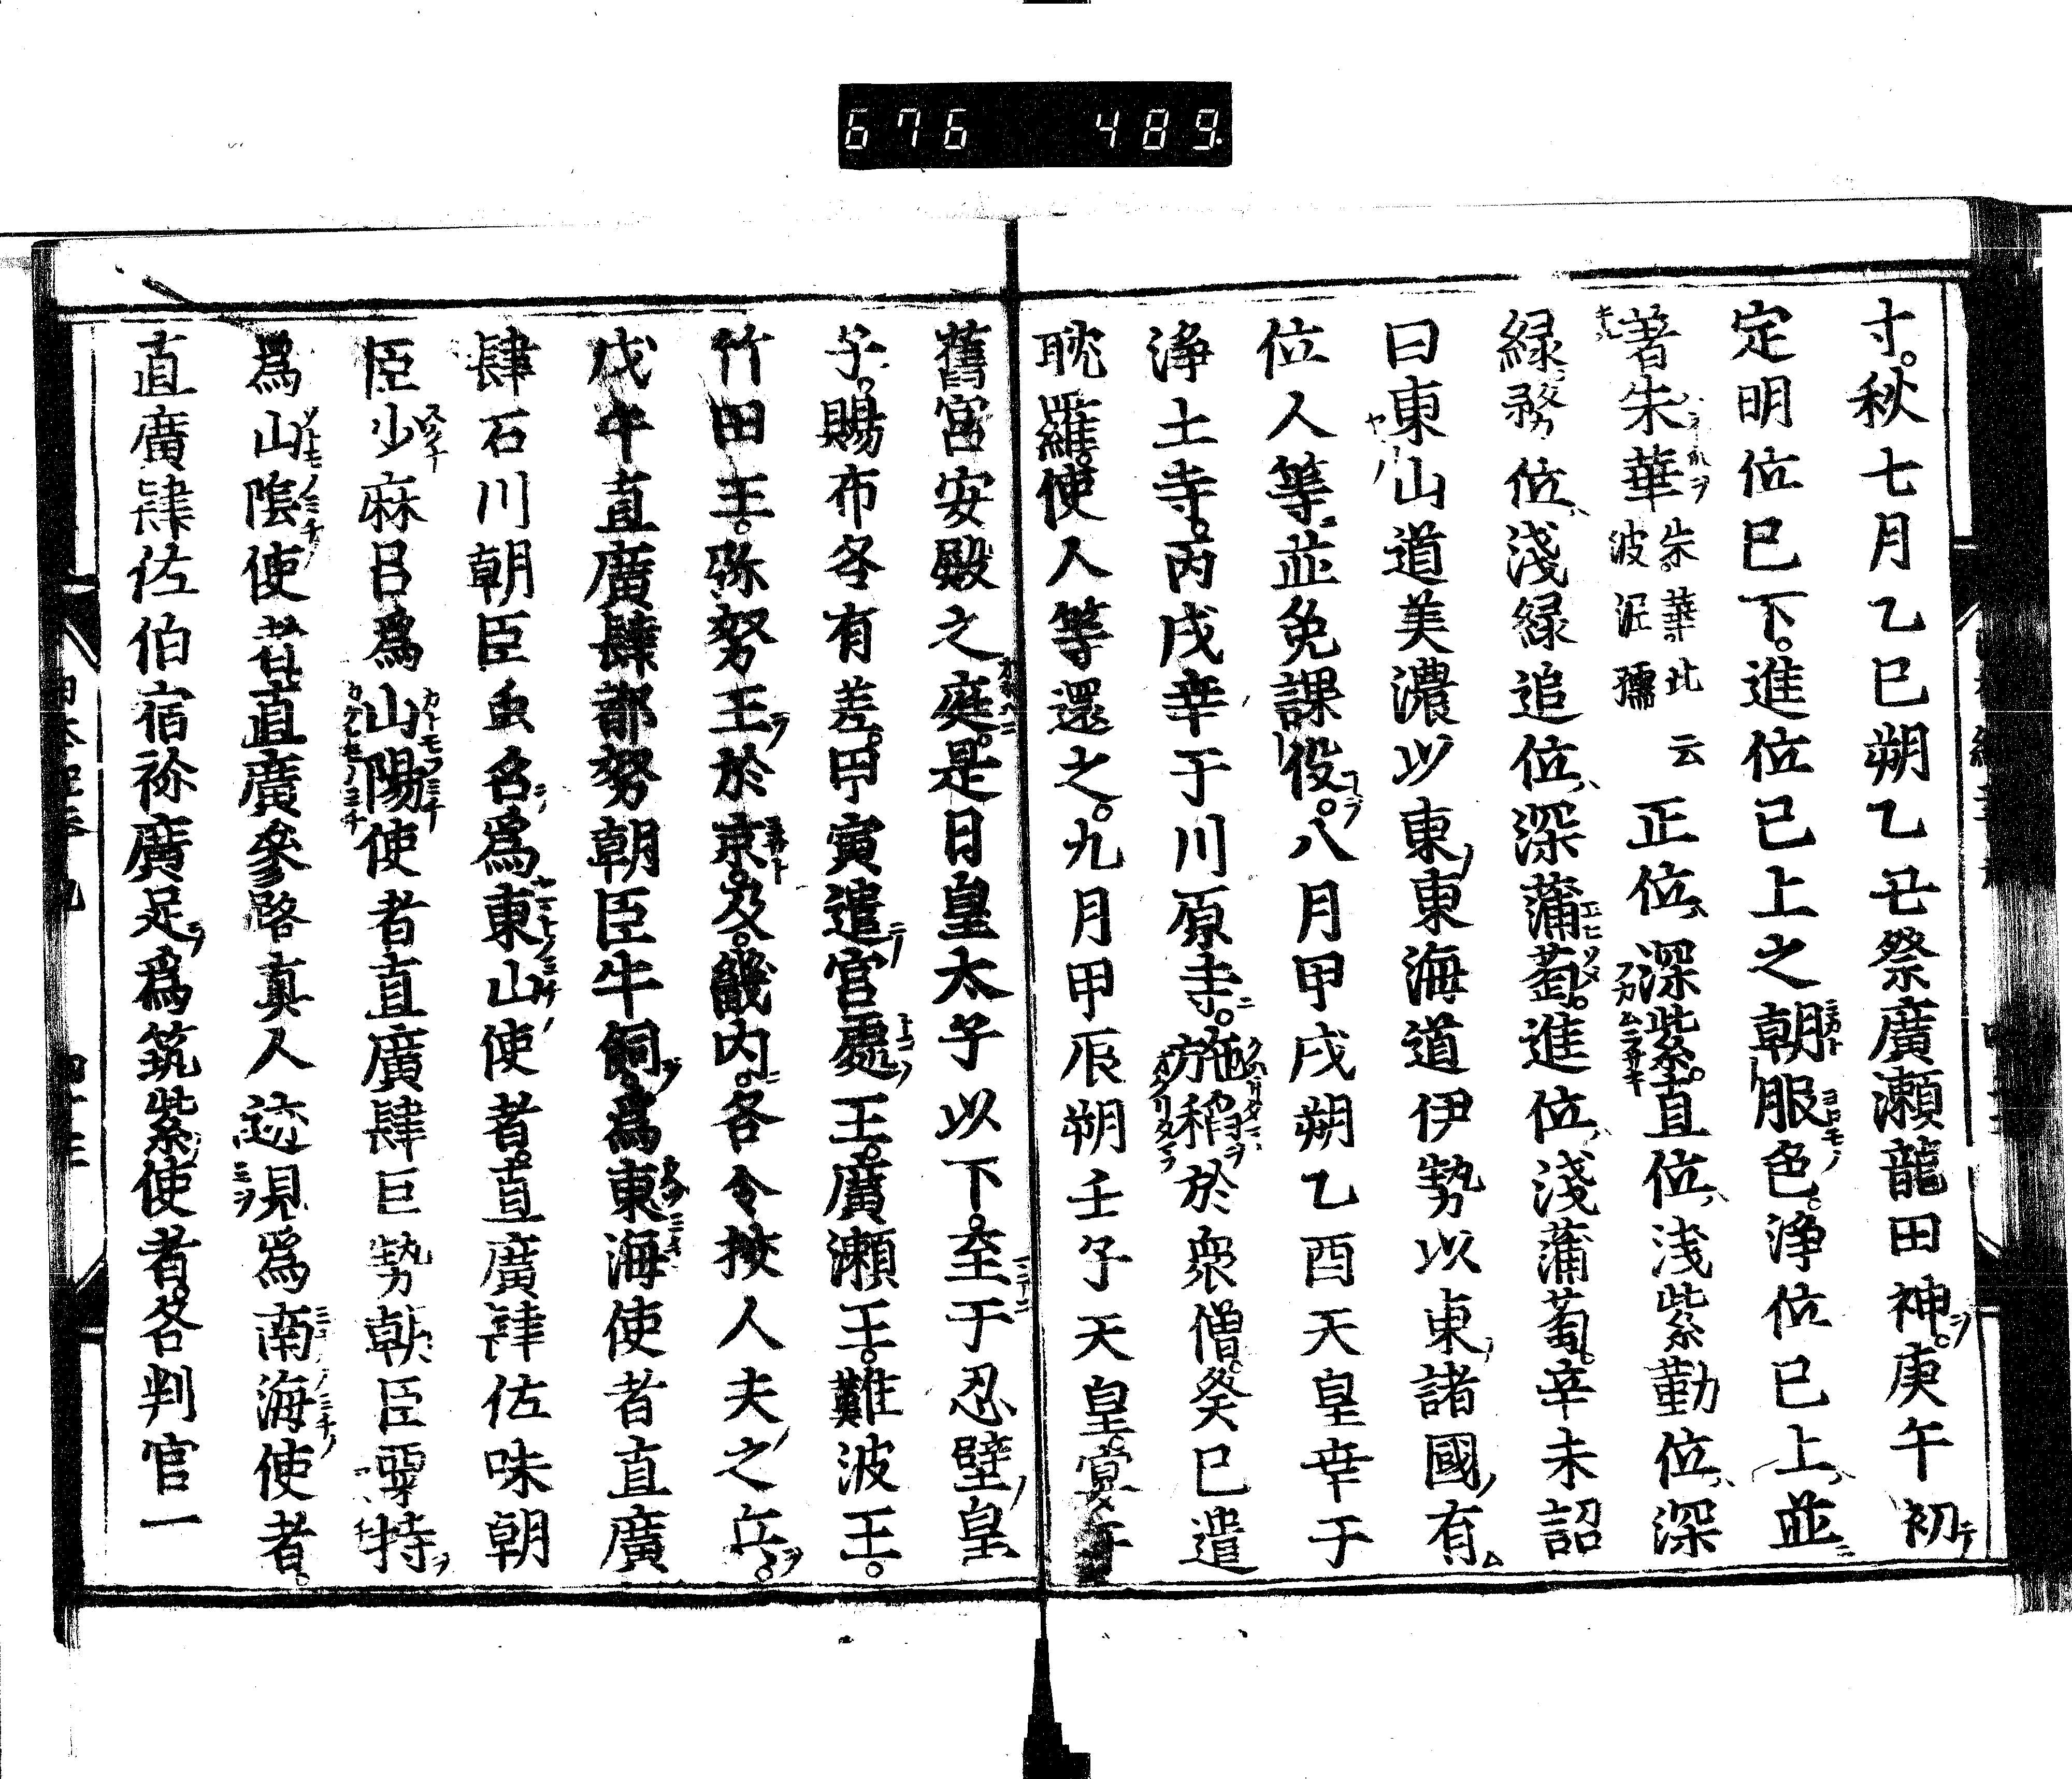 676 489
寸秋七月乙巳朔乙丑祭廣瀬龍田神庚午初
定明位已下進位已上之朝服色淨位已上並
著朱華朱華此云波泥孺正位深紫直位浅紫勤位深
緑務位淺緑追位深蒲萄進位淺蒲萄辛未詔
曰東山道美濃以東東海道伊勢以東諸國有
位人等並免課役八月甲戌朔乙酉天皇幸于
淨土寺丙戌幸于川原寺施稻於衆僧癸巳遣
耽羅使人等還之九月甲辰朔壬子天皇宴于
舊宮安殿之庭是日皇太子以下至于忍壁皇
子賜布各有差甲寅遣官處王廣瀬王難波王
竹田王弥努王於京及畿内各令挍人夫之兵
戊午直廣肆都努朝臣牛飼爲東海使者直廣
肆石川朝臣虫名爲東山使者直廣肆佐味朝
臣少麻呂爲山陽使者直廣肆巨勢朝臣粟特
爲山陰使者直廣參路真人迹見爲南海使者
直廣肆佐伯宿祢廣足爲筑紫使者各判官一